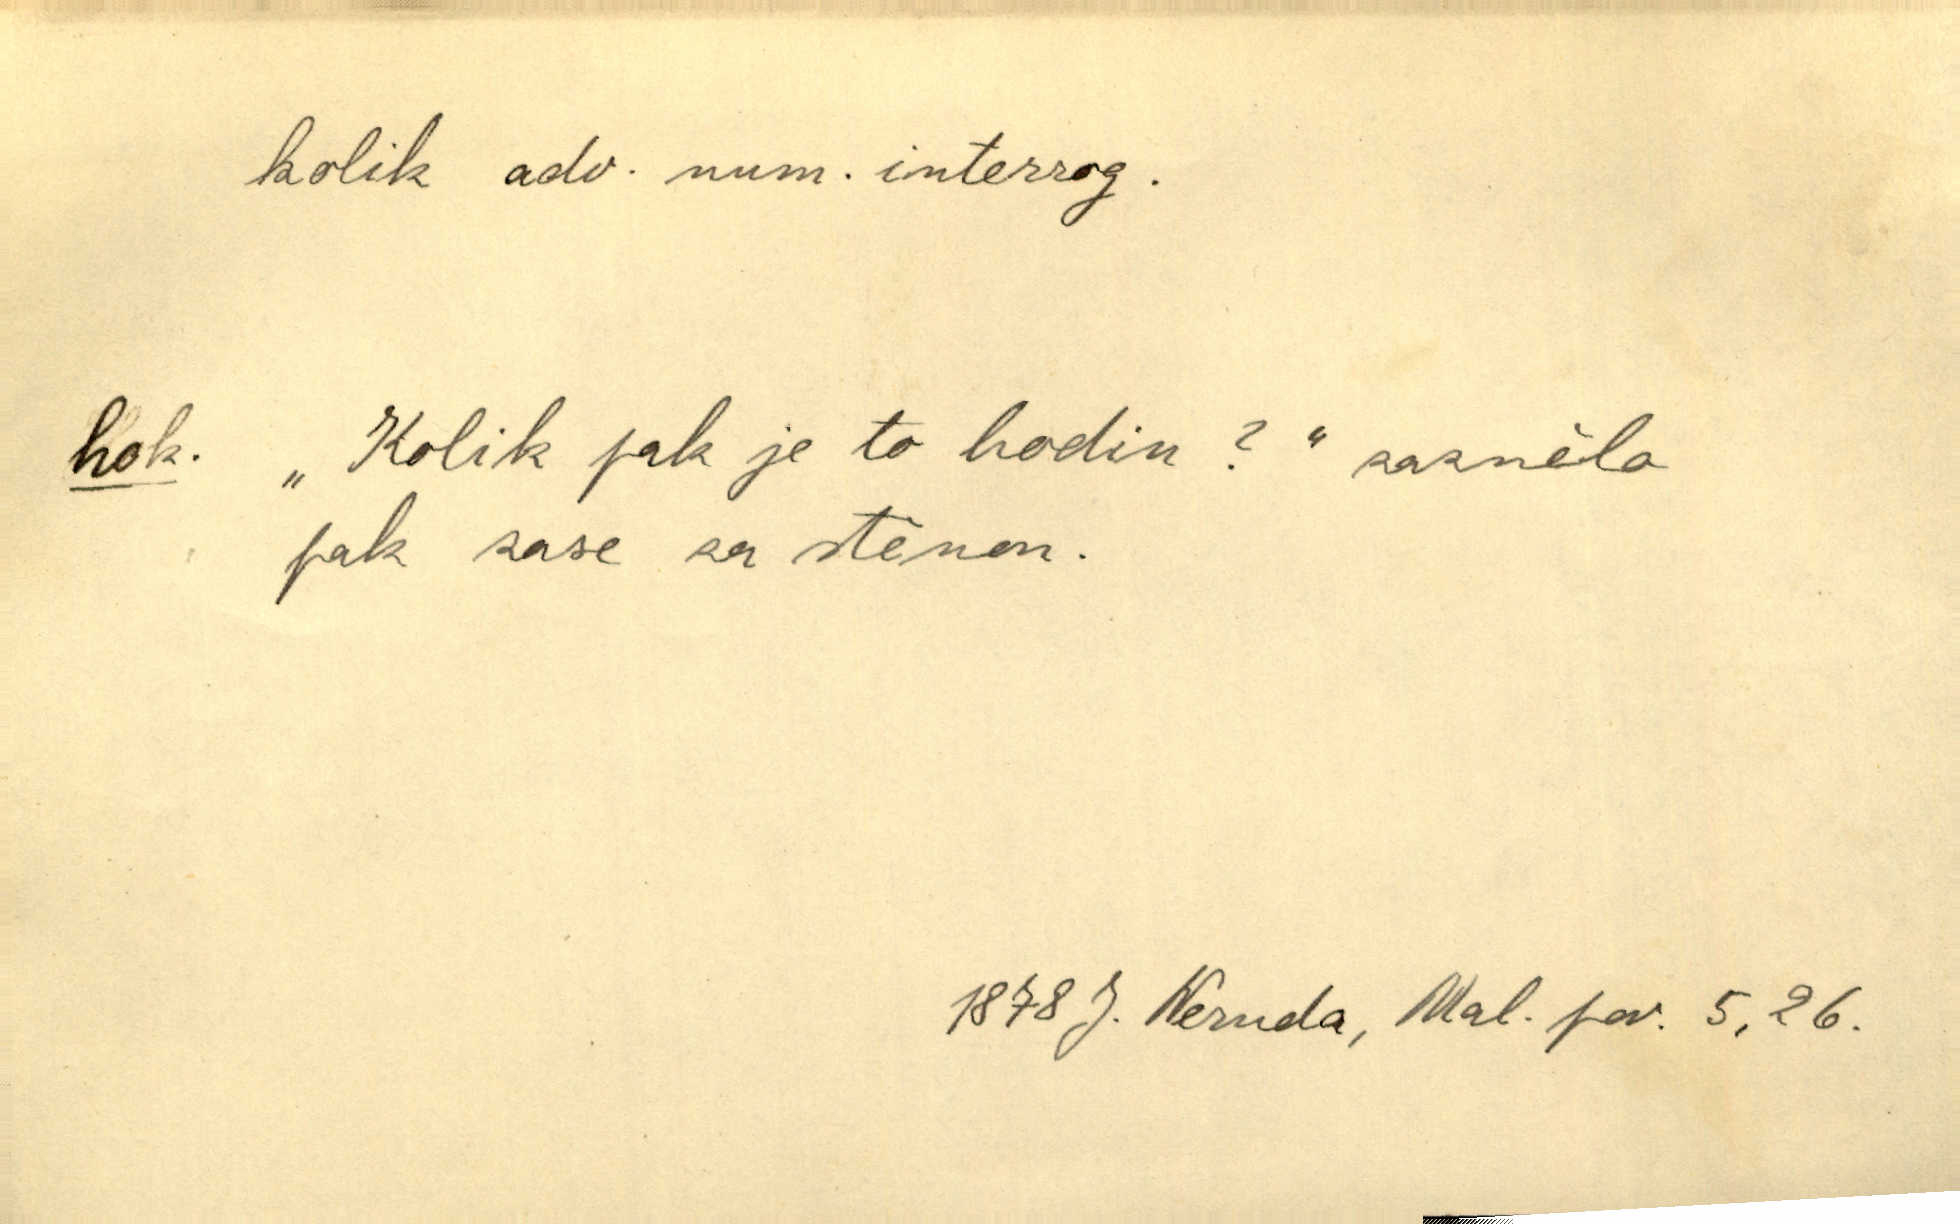 kolik adv. num. interrog.
hok. „Kolik pak je to hodin?“ zaznělo
pak zase za stěnou.
1878 J. Neruda, Mal. pov. 5, 26.